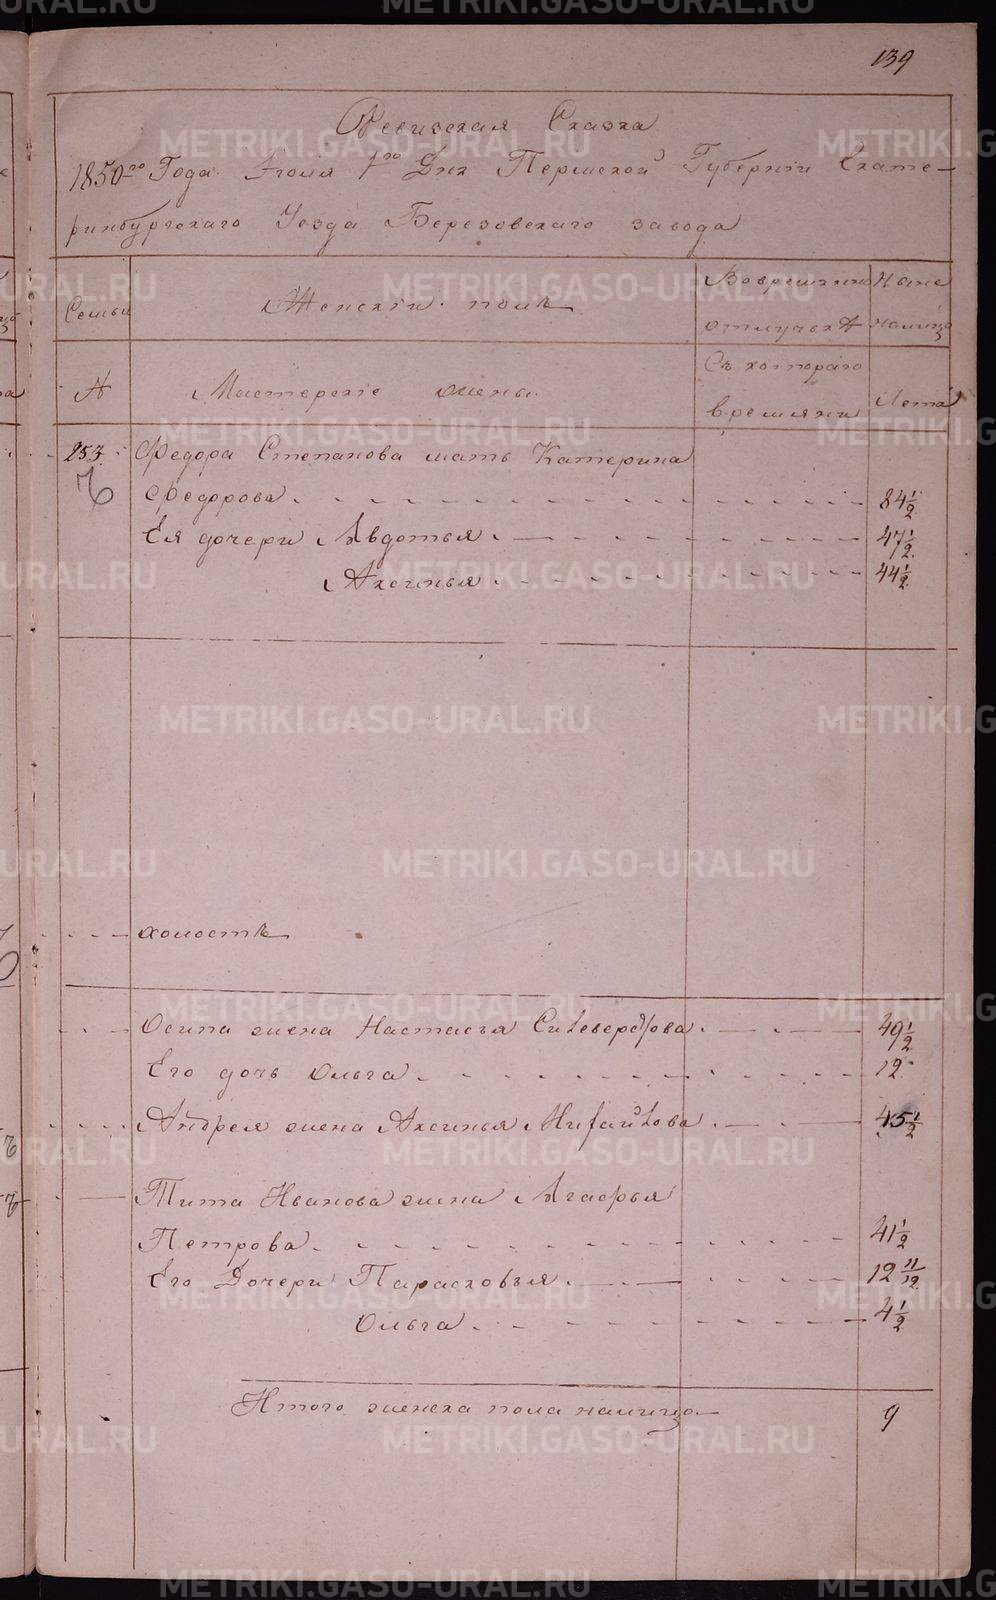 139
Ревизская Сказка
1850го Года Iюля 1го Дня Пермской Губернiи Екате-
ринбургскаго Уезда Березовскаго завода
Семьи
Женскiй полъ
Во временной
отлучкѣ
Ныне
налицо
№
Мастерскiе жены
Съ котораго
времяни
Лета
253
Федора Степанова мать Катерина
Федорова 84 1/2
Ея дочери Авдотья 47 1/2
Аксинья 44 1/2
холостъ
Осипа жена Настасья Силеверстова 49 1/2
Его дочь Ольга 12
Андрея жена Аксинья Михайлова 45 1/2
Тита Иванова жена Агафья
Петрова 41 1/2
Его Дочери Парасковья 12 11/12
Ольга 4 1/2
Итого женска пола налицо 9
METRIKI.GASO-URAL.RU